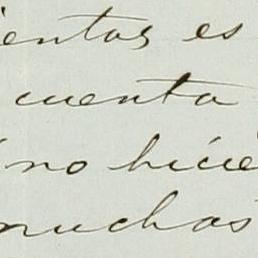 ientos es
cuenta
no hicie
muchas